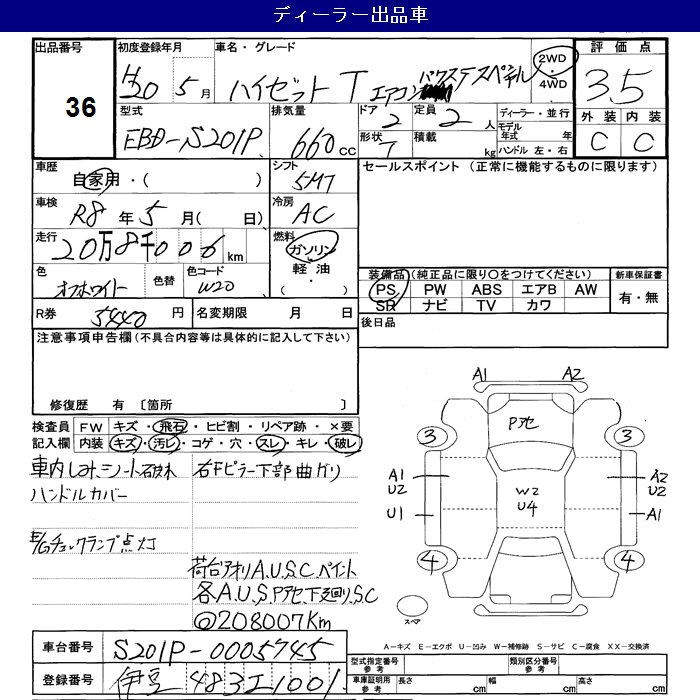 ディーラー出品車
出品番号 36
初度登録年月 H20 5月
車名・グレード ハイゼットT エアコンパワステスペシャル
2WD・4WD
評価点 3.5
外装 C 内装 C
型式 EBD-S201P
排気量 660cc
ドア 2 形状 T
定員 2人 積載 kg
ディーラー・並行
モデル年式 年
ハンドル 左・右
車歴 自家用・( )
シフト 5MT
セールスポイント (正常に機能するものに限ります)
車検 R8年5月( 日)
冷房 AC
走行 20万8千006km
燃料 ガソリン・軽油・( )
色 オフホワイト 色替 色コード W20
装備品(純正品に限り○をつけてください)
PS PW ABS エアB AW
SR ナビ TV カワ
新車保証書 有・無
R券 5440円 名変期限 月 日
後日品
注意事項申告欄(不具合内容等は具体的に記入して下さい)
修復歴 有 〔箇所 〕
検査員記入欄
FW キズ・飛石・ヒビ割・リペア跡・×要
内装 キズ・汚レ・コゲ・穴・スレ・キレ・破レ
車内しみ シート破れ
ハンドルカバー
E/Gチェックランプ点灯
右Fピラー下部曲ガリ
荷台アオリA.U.S.C.ペイント
各A.U.S.Pアセ下廻りS.C
◎208007Km
A1 A2
Pアセ
3 3
A1 U2
U1
W2 U4
A2 U2
A1
4 4
スペア
A-キズ E-エクボ U-凹み W-補修跡 S-サビ C-腐食 XX-交換済
車台番号 S201P-0005745
登録番号 伊豆 483 エ 1001
型式指定番号 参考 類別区分番号 参考
車庫証明用 参考 長さ cm 幅 cm 高さ cm